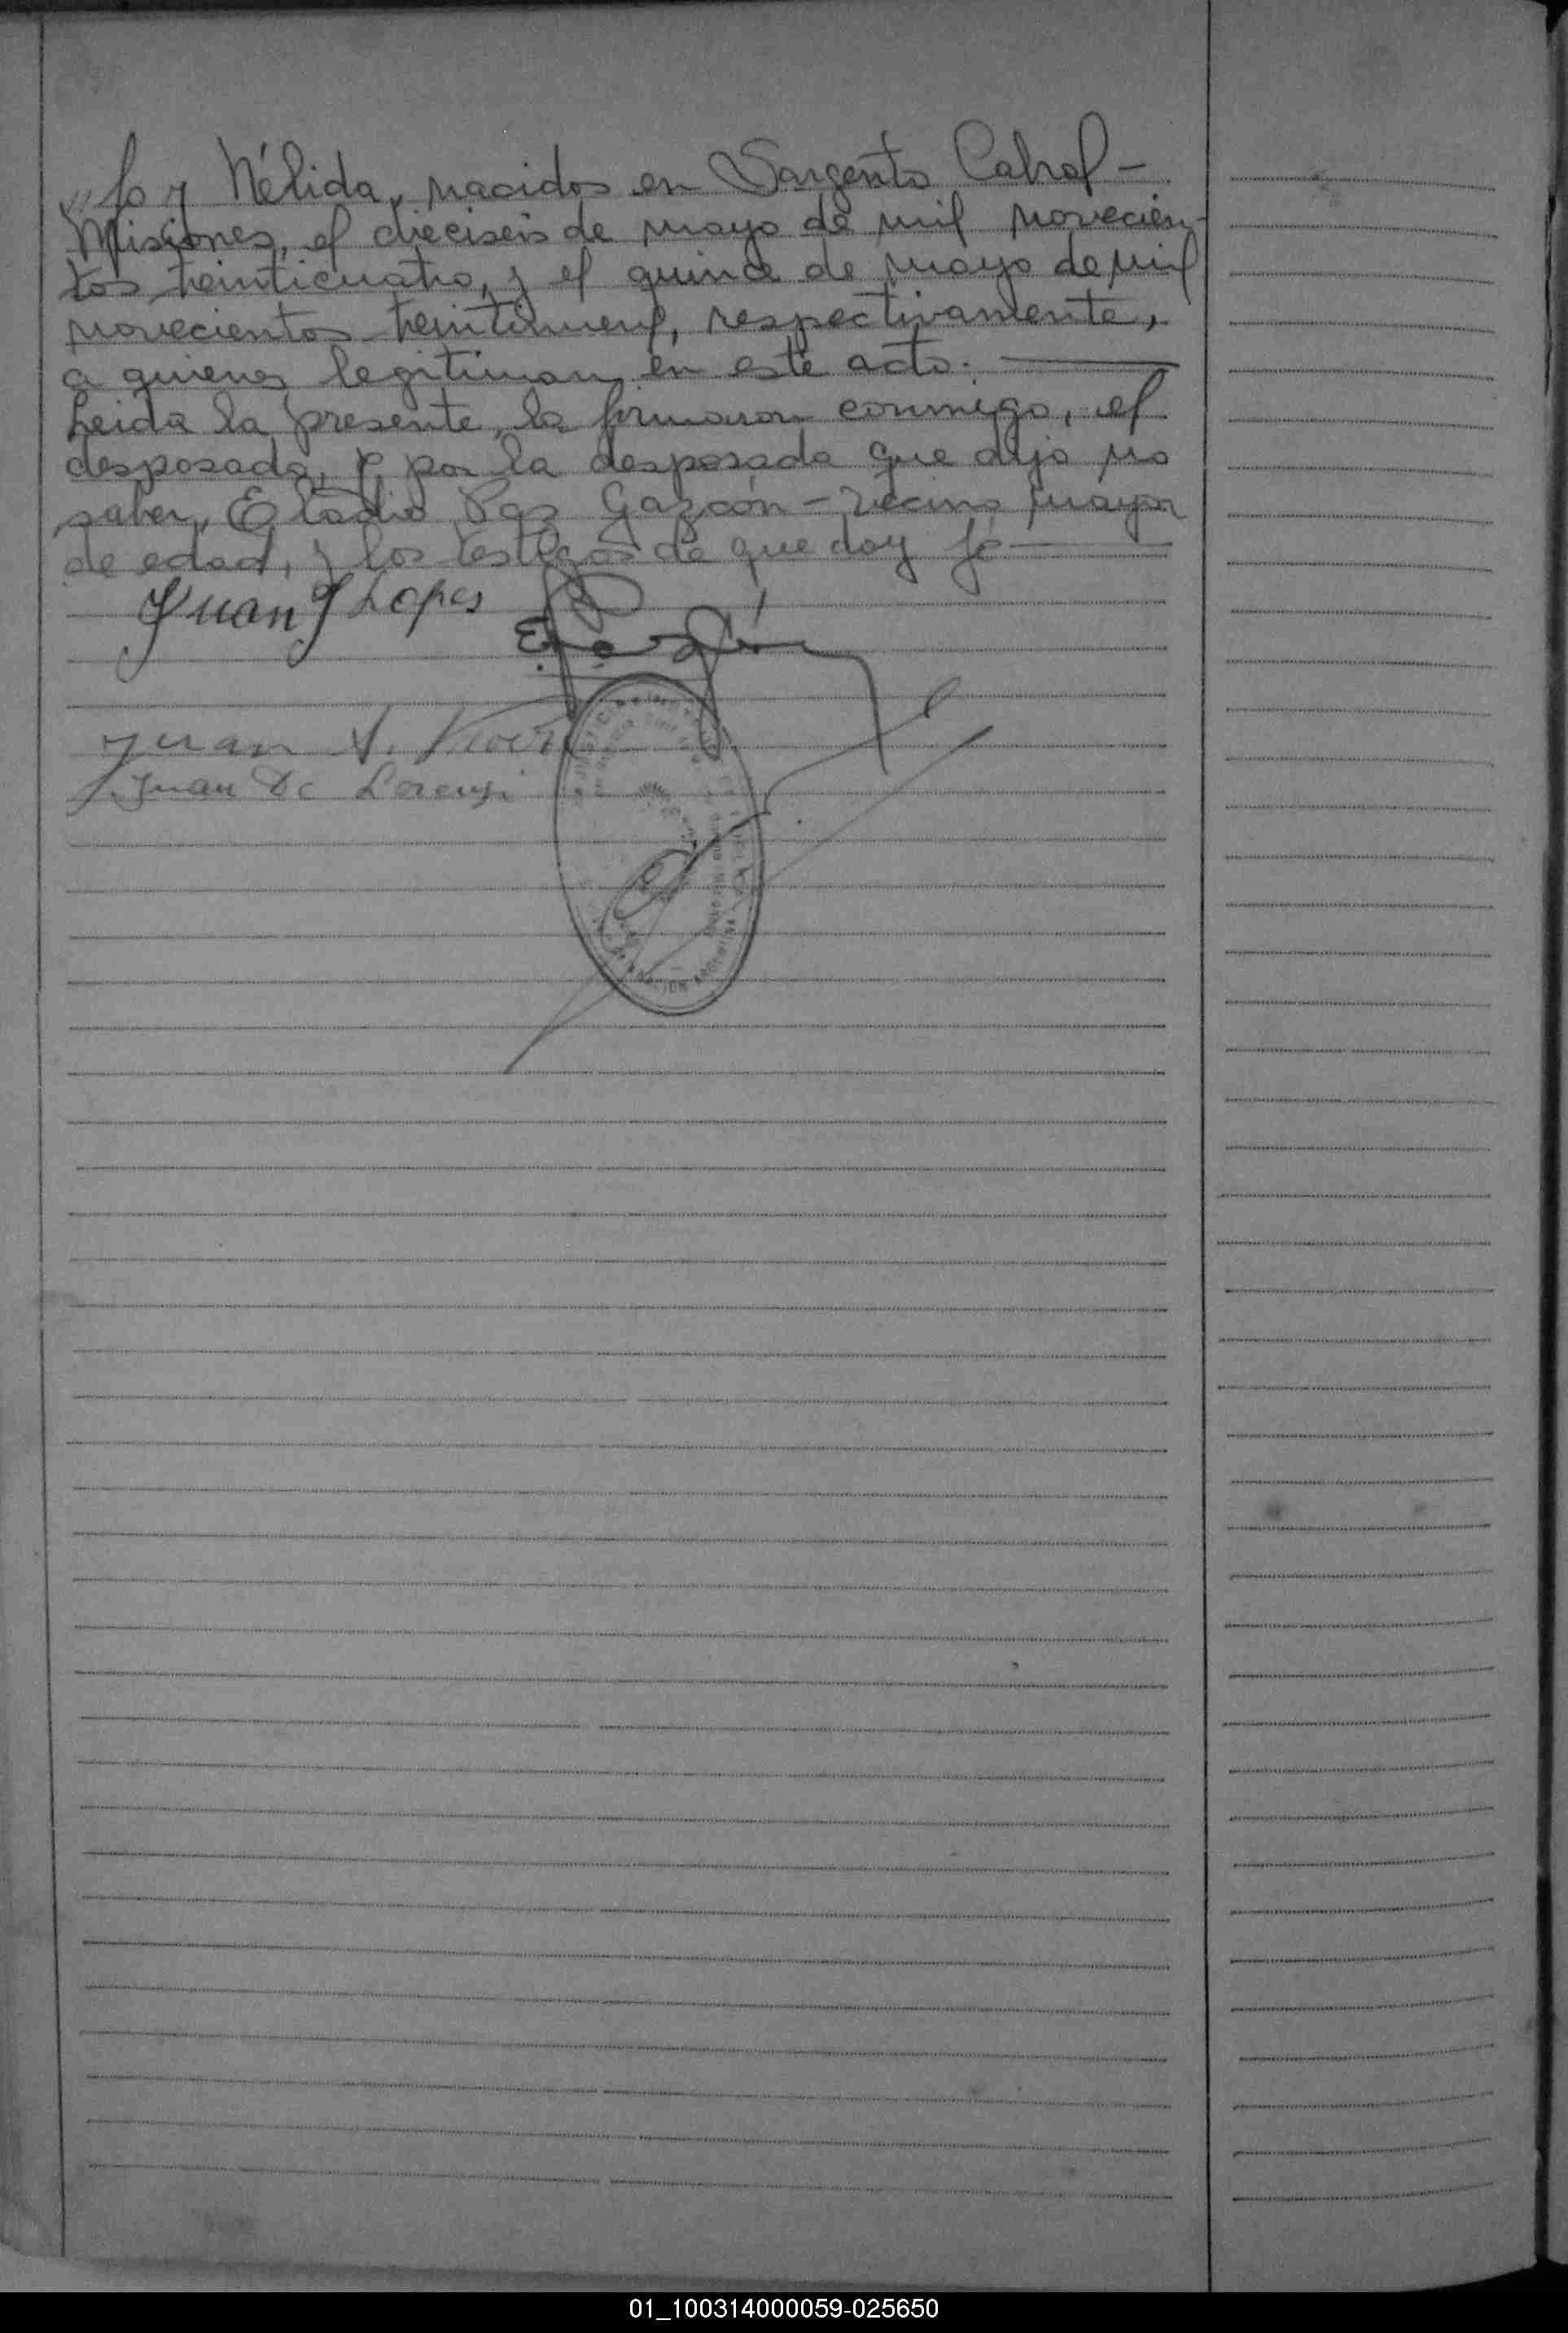 „ lo y Nélida, nacidos en Sargento Cabral -
Misiones, el dieciseis de mayo de mil novecien-
tos veinticuatro, y el quince de mayo de mil
novecientos veintinueve, respectivamente,
a quienes legitiman en este acto.
Leida la presente, la firmaron conmigo, el
desposado, y por la desposada que dijo no
saber, Eladio Pas Garzón - vecino mayor
de edad, y los testigos de que doy fé
Juan J Lopes
Juan A.
Juan De Lorenzi
01_100314000059-025650